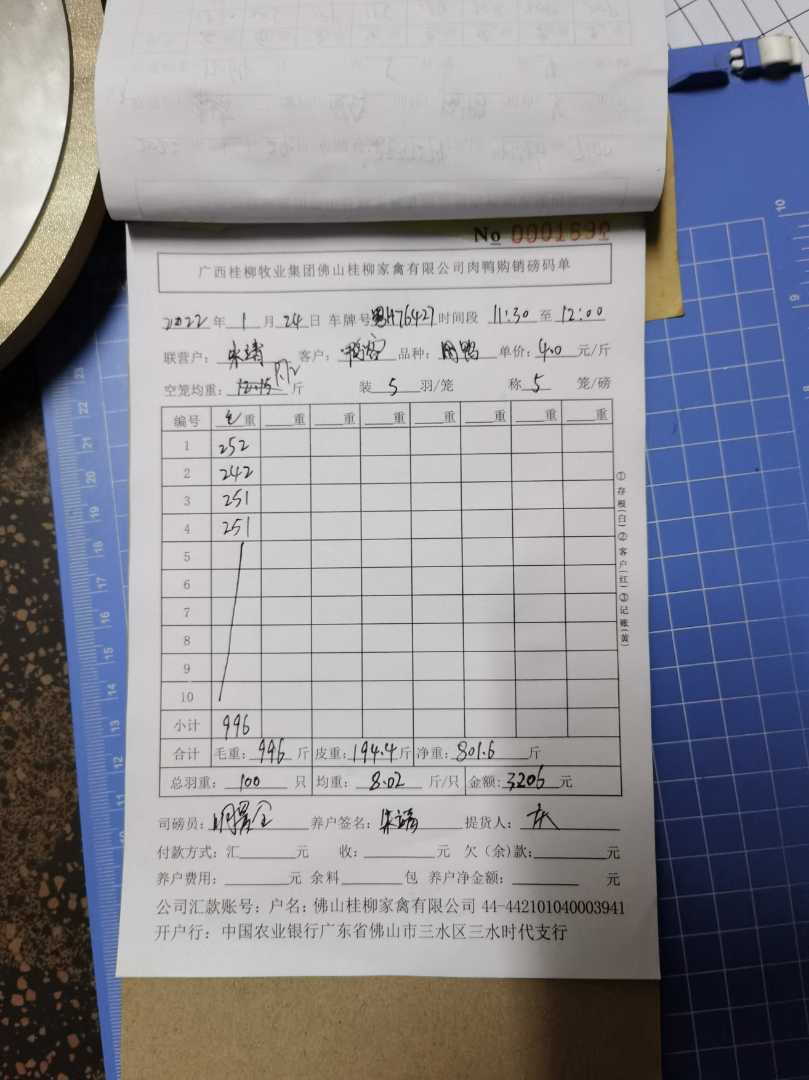 No 000189
广西桂柳牧业集团佛山桂柳家禽有限公司肉鸭购销磅码单
2022 年 1 月 24 日 车牌号 H76427 时间段 11:30 至 12:00
联营户: 客户: 品种: 鸭 单价: 4.0 元/斤
空笼均重: 斤 装 5 羽/笼 称 5 笼/磅
编号 毛重 重 重 重 重 重 重 重
1 252
2 242
3 251
4 251
5
6
7
8
9
10
小计 996
合计 毛重: 996 斤 皮重: 194.4 斤 净重: 801.6 斤
总羽重: 100 只 均重: 8.02 斤/只 金额: 3206 元
司磅员: 养户签名: 提货人:
付款方式: 汇 元 收: 元 欠(余)款: 元
养户费用: 元 余料 包 养户净金额: 元
公司汇款账号: 户名: 佛山桂柳家禽有限公司 44-442101040003941
开户行: 中国农业银行广东省佛山市三水区三水时代支行
①存根(白)②客户(红)③记账(黄)